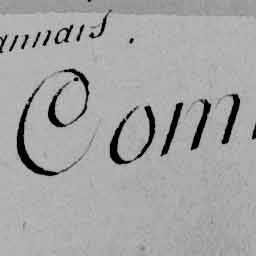 annais.
Com